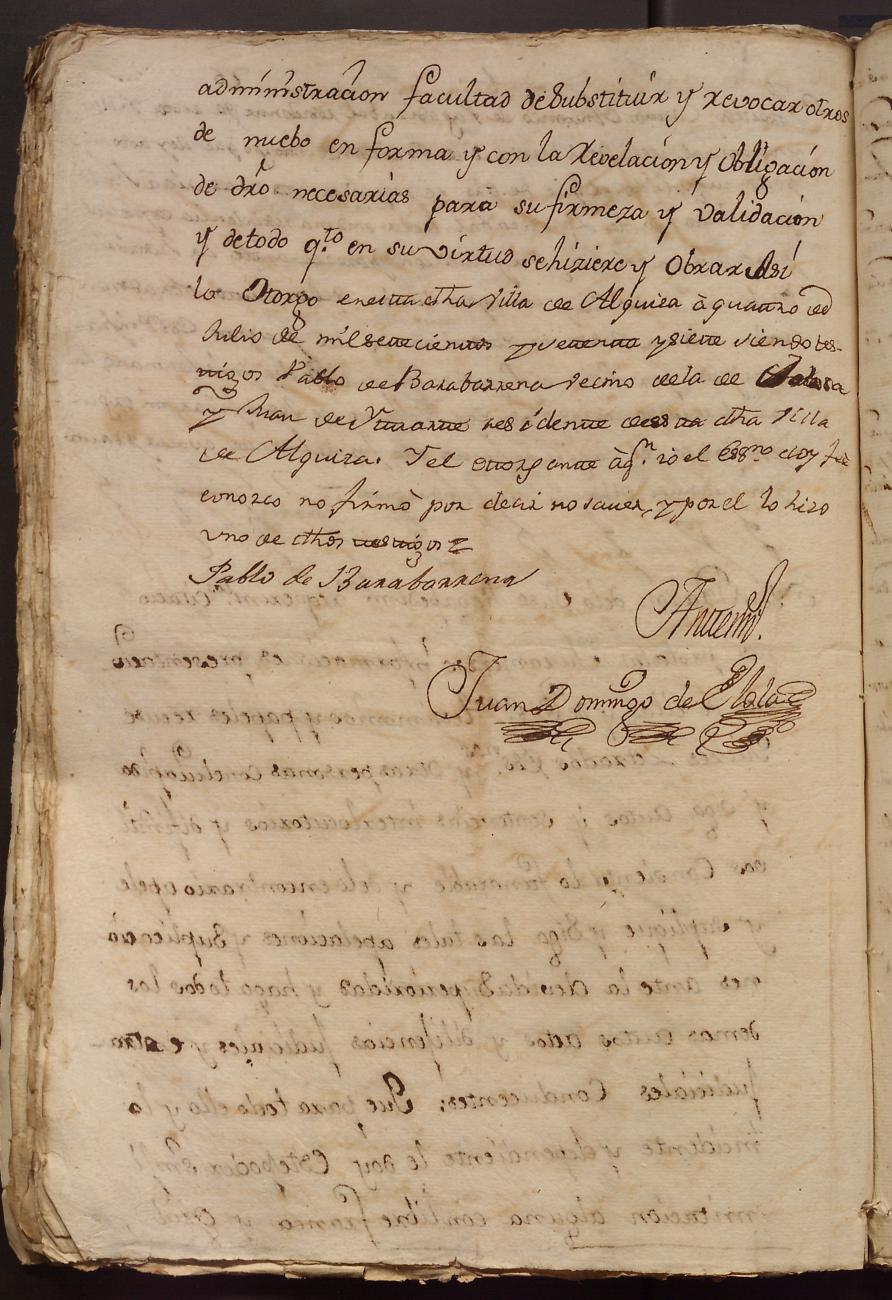 administracion facultad de Substituir y revocar otros
de nuebo en forma y con la Revelacion y obligacion
de dró necesarias para su firmeza y validacion
y de todo q.to en su virtud se hiziere y Obrare Asi
lo Otorgo en esta dha villa de Alquiza à quatro de
Julio de mil setecientos y setenta y siete siendo tes-
tigos Pablo de Barabarrena vecino de la de Tolosa
y Juan de Yturarte residente en esta dha Villa
de Alquiza. Y el otorgante à q.n io el Ess.no doy fee
conozco no firmò por decir no saver, y por el lo hizo
uno de dhos testigos
Pablo de Barabarrena
Antemi.
Juan Domingo de Elola